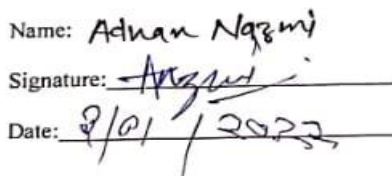 Name: Adnan Nazmi
Signature:
Date: 8/01/2022